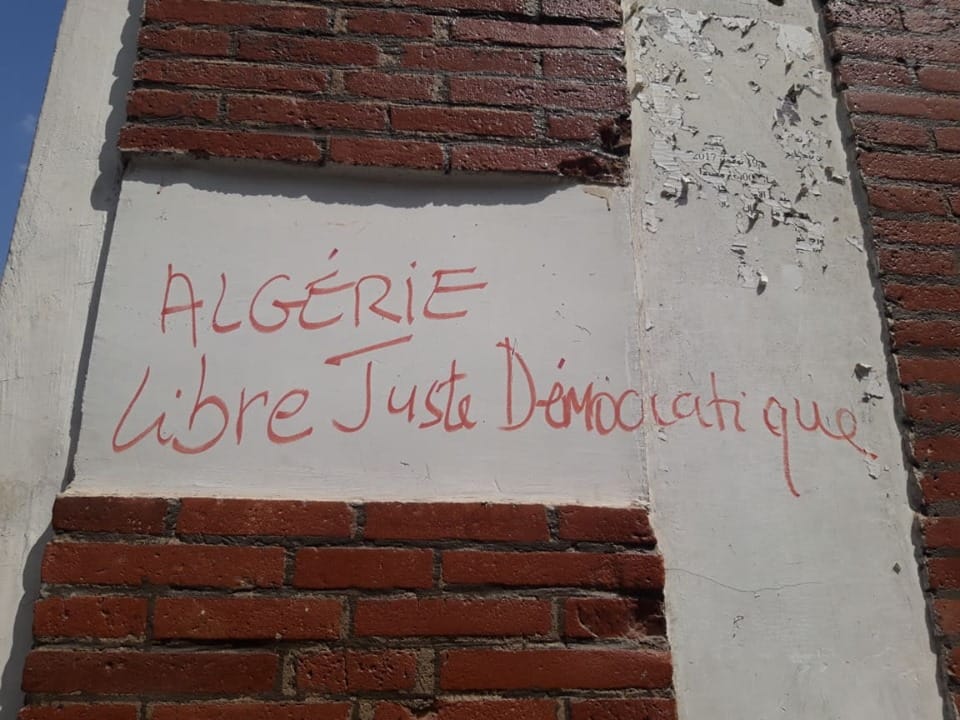 ALGÉRIE
Libre Juste Démocratique
2017